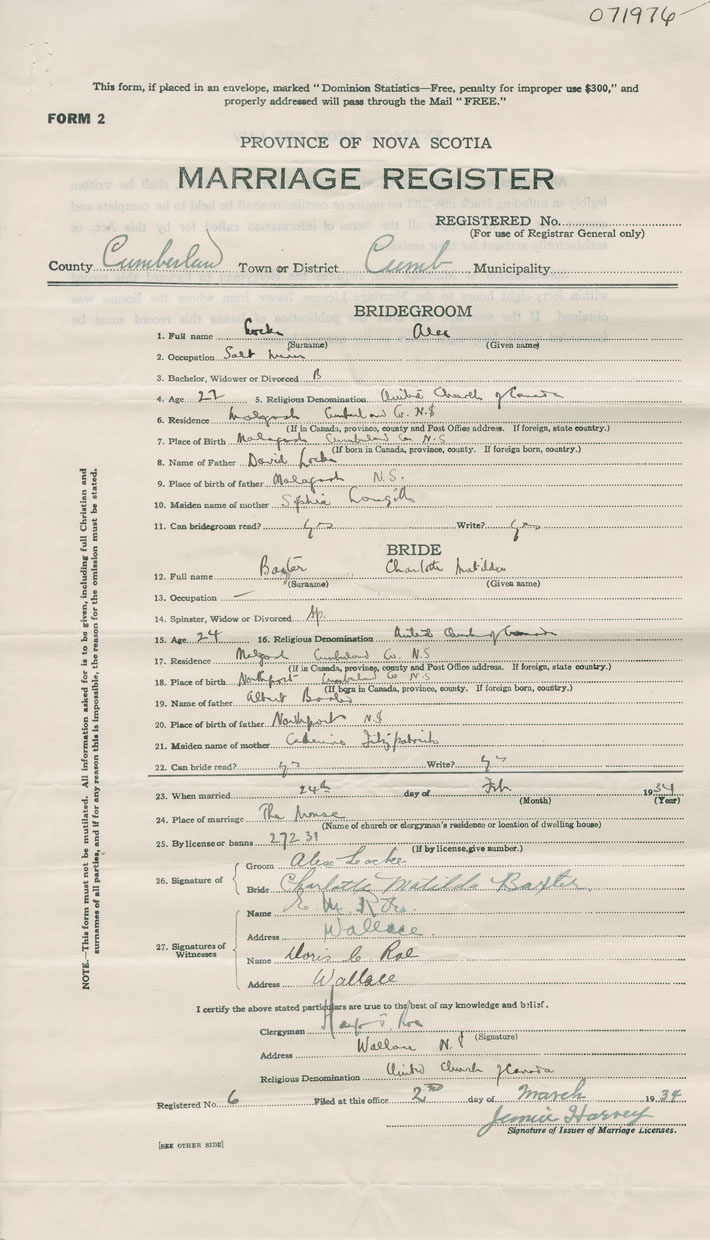 071976
This form, if placed in an envelope, marked "Dominion Statistics—Free, penalty for improper use $300," and
properly addressed will pass through the Mail "FREE."
FORM 2
PROVINCE OF NOVA SCOTIA
MARRIAGE REGISTER
REGISTERED No.
(For use of Registrar General only)
County Cumberland Town or District Cumb Municipality
BRIDEGROOM
1. Full name Locke Alex
(Surname) (Given name)
2. Occupation Salt Miner
3. Bachelor, Widower or Divorced B
4. Age 27 5. Religious Denomination United Church of Canada
6. Residence Malagash Cumberland Co. N.S
(If in Canada, province, county and Post Office address. If foreign, state country.)
7. Place of Birth Malagash Cumberland Co. N.S
(If born in Canada, province, county. If foreign born, country.)
8. Name of Father David Locke
9. Place of birth of father Malagash N.S.
10. Maiden name of mother Sophia
11. Can bridegroom read? yes Write? yes
BRIDE
12. Full name Baxter Charlotte Matilda
(Surname) (Given name)
13. Occupation —
14. Spinster, Widow or Divorced Sp.
15. Age 24 16. Religious Denomination United Church of Canada
17. Residence Malagash Cumberland Co. N.S
(If in Canada, province, county and Post Office address. If foreign, state country.)
18. Place of birth Northport Cumberland Co N.S
(If born in Canada, province, county. If foreign born, country.)
19. Name of father Albert Baxter
20. Place of birth of father Northport N.S
21. Maiden name of mother Catherine Fitzpatrick
22. Can bride read? yes Write? yes
23. When married 24th day of Feb 1934
(Month) (Year)
24. Place of marriage The Manse
(Name of church or clergyman's residence or location of dwelling house)
25. By license or banns 27231
(If by license, give number.)
26. Signature of
Groom Alex Locke
Bride Charlotte Matilda Baxter
27. Signatures of Witnesses
Name E. M.
Address Wallace
Name Doris C Roe
Address Wallace
I certify the above stated particulars are true to the best of my knowledge and belief.
Clergyman Roe
(Signature)
Address Wallace N.S
Religious Denomination United Church of Canada
Registered No. 6 Filed at this office 2nd day of March 1934
Jennie Harvey
Signature of Issuer of Marriage Licenses.
[SEE OTHER SIDE]
NOTE.—This form must not be mutilated. All information asked for is to be given, including full Christian and
surnames of all parties, and if for any reason this is impossible, the reason for the omission must be stated.